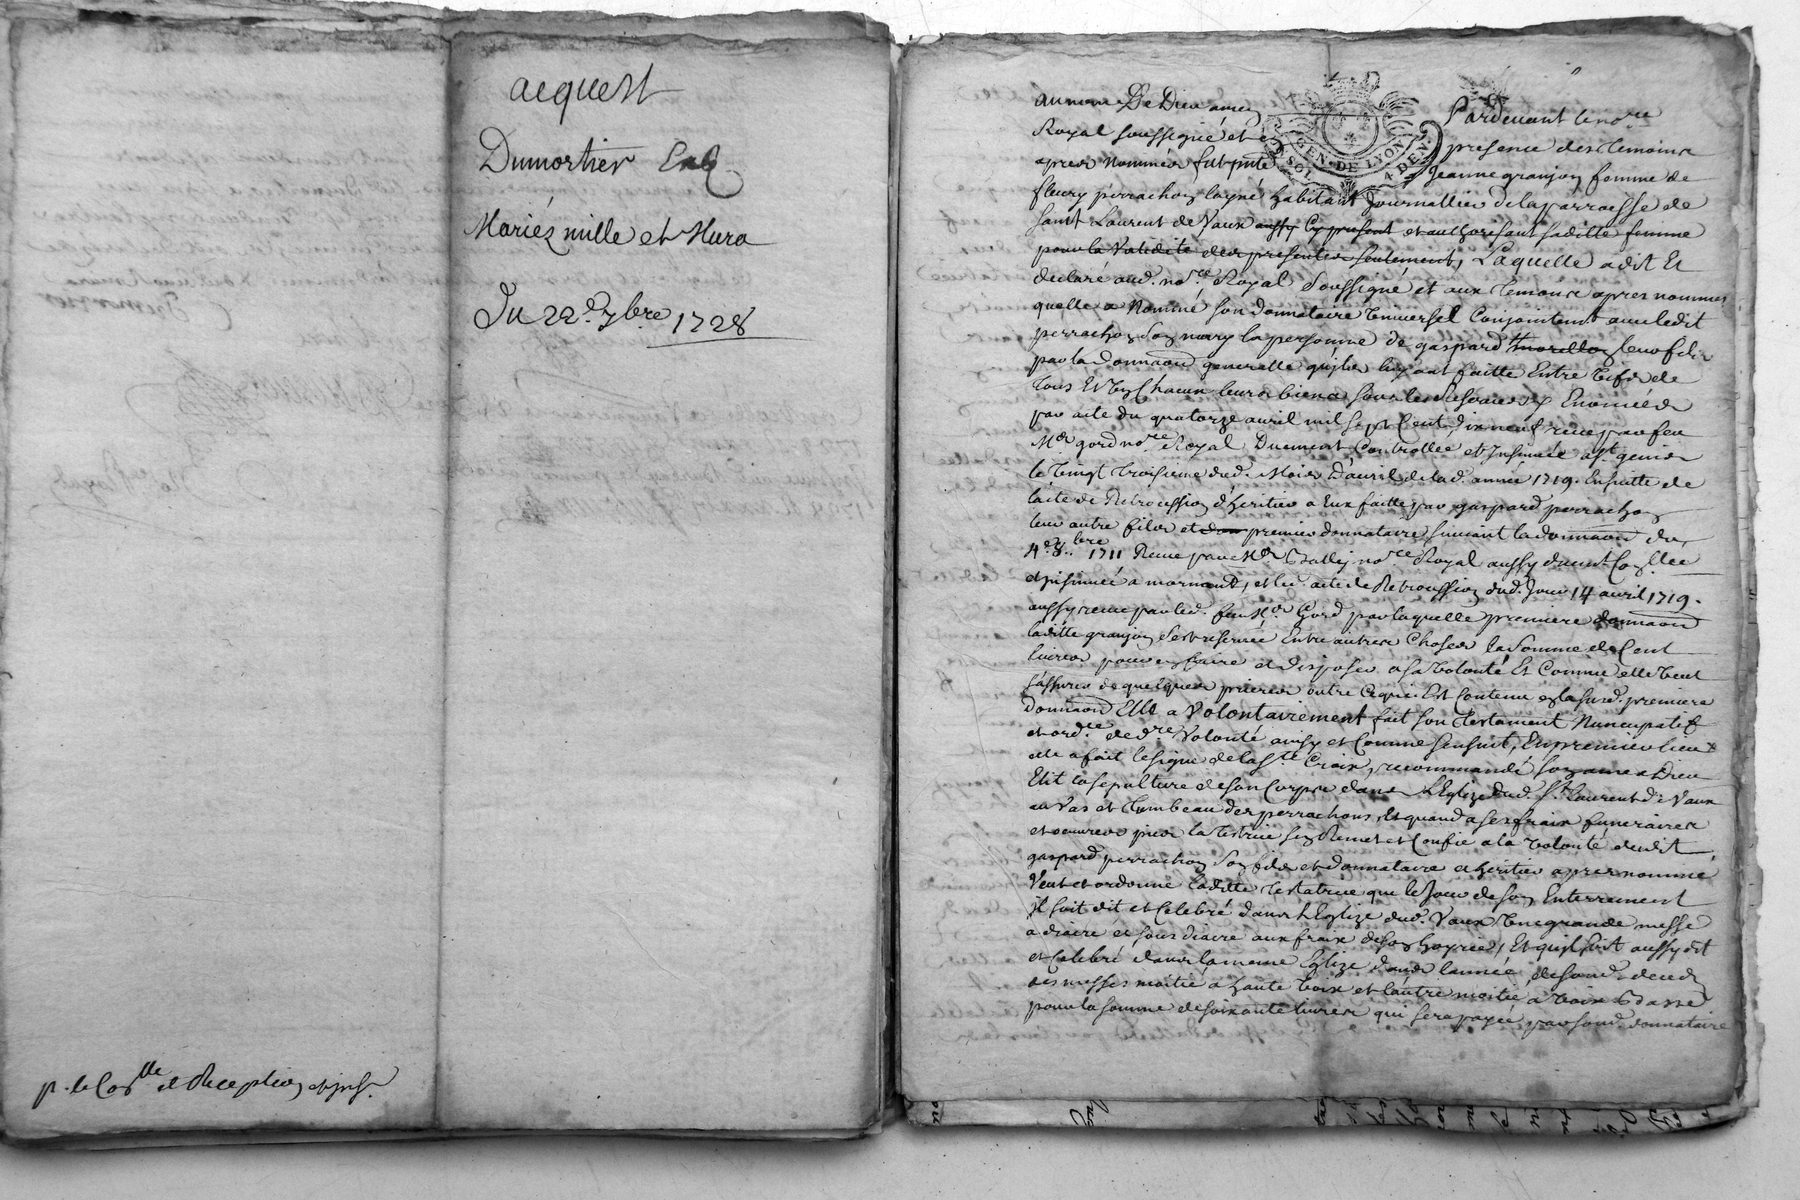 acquest
Dumortier
Mariéz mille et Mura
Du 22e 7bre 1728
p. le Conlle et Reception et jns.
au nom De Dieu amen Pardevant le nore
Royal soussigné et presence des temoins
apres nommés fut pnte Jeanne granjon femme de
fleury perrachon layné habitant Journallier de la parroesse de
saint Laurent de Vaux aussy cy present et authorisant saditte femme
pour la validité des presentes seulement, Laquelle a dit et
declaré aud. nore Royal soussigné et aux temoins apres nommes
quelle a Nommé son donnataire universel Conjointemt avec ledit
perrachon son mary la personne de gaspard leur fils
par la donnaon generelle quils luy ont faitte Entre vifs de
tous Et un chacun leurs biens sous les reserves y Enoncées
par acte du quatorze avril mil sept cent dix neuf receu par feu
Me gord nore Royal Duement Controllée et Insinuée a st genis
le vingt troisieme dud. Mois D'avril de lad. année 1719. En suitte de
lacte de Retrocession d'heritier a Eux faitte par gaspard perrachon
leur autre fils et premier donnataire suivant la donnaon du
4e 8bre 1711 Receue par Me nore Royal aussy duemt Conllée
et jnsinuée a mornant, et led. acte de Retrocession dud. Jour 14 avril 1719.
aussy receu par led. feu Me Gord par laquelle premiere donnaon
laditte granjon s'est reservée Entre autres Choses la somme de Cent
livres pour en faire et disposer a sa volonté Et Comme elle veut
s'assurer de quelques prieres outre ce qui Est Contenu en la susd. premiere
donnaon Elle a volontairement fait son testament Nuncupatif
et ordce de dre volonté ainsy et comme sensuit, En premier lieu
elle a fait le signe de la ste Croix, recommandé son ame a Dieu
Elit la sepulture de son Corps dans L'Eglize dud. st Laurent de Vaux
au vas et tumbeau des perrachons, Et quand a ses fraix funeraires
et oeuvres pies la testrice sen Remet et Confie a la volonté dudit
gaspard perrachon son fils et donnataire et heritier apres nommé
Veut et ordonne laditte testatrice que le Jour de son Enterrement
il soit dit et Celebré dans l'Eglize dud. Vaux une grande messe
a diacre et sous diacre aux fraix de son hoyrie, Et quil soit aussy dit
et Celebré dans la meme Eglize dans lannée de sond. deceds
des messes moitié a haute voix et lautre moitié a voix basse
pour la somme de soixante livres qui sera payée par sond. donnataire
GEN. DE LYON